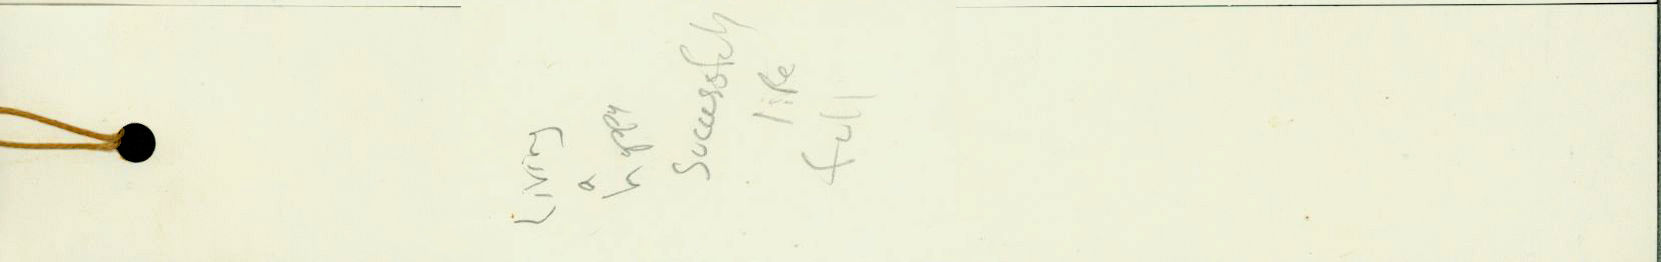 Living
a
happy
Successfully
life
full